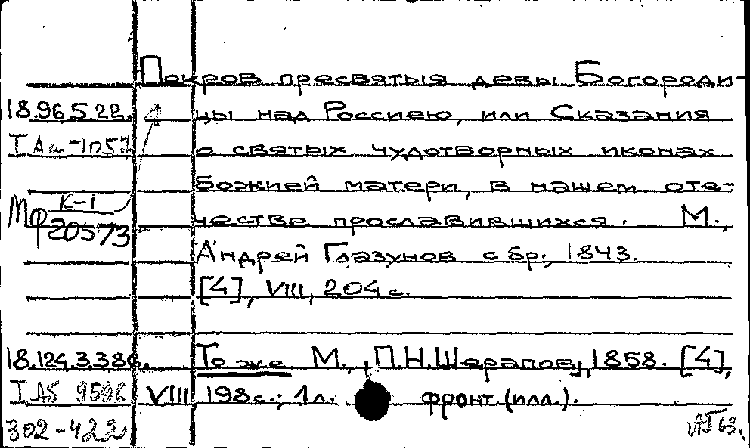 Покров пресвятыя девы Богороди-
18.96.5.22. цы над Россиею, или Сказания
о святых чудотворных иконах
божией матери, в нашем оте-
Мф К-1 20573 честве прославившихся. М.,
Андрей Глазунов с бр., 1843.
[4], VIII, 204 с.
18.124.3.386. То же М., П.Н.Шарапов, 1858. [4],
VIII 198 с.; 1 л. фронт. (илл.).
302-422